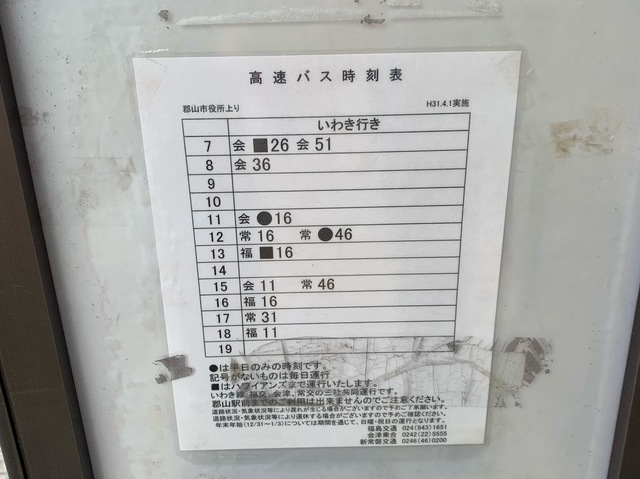 高速バス時刻表
郡山市役所上り H31.4.1実施
いわき行き
7 会 ■26 会 51
8 会 36
9
10
11 会 ●16
12 常 16 常 ●46
13 福 ■16
14
15 会 11 常 46
16 福 16
17 常 31
18 福 11
19
●は平日のみの時刻です。
記号がないものは毎日運行
■はハワイアンズまで運行いたします。
いわき線・福交、会津、常交の三社共同運行です。
郡山駅前までのご利用は出来ませんのでご注意ください。
道路状況・気象状況等により遅れが生じる場合がございますので予めご了承願います。
道路状況・気象状況等により運休する場合がございますので予めご確認ください。
年末年始(12/31~1/3)については期間を通じて、日曜・祝日の運行となります。
福島交通 024(943)1851
会津乗合 0242(22)5555
新常磐交通 0246(46)0200